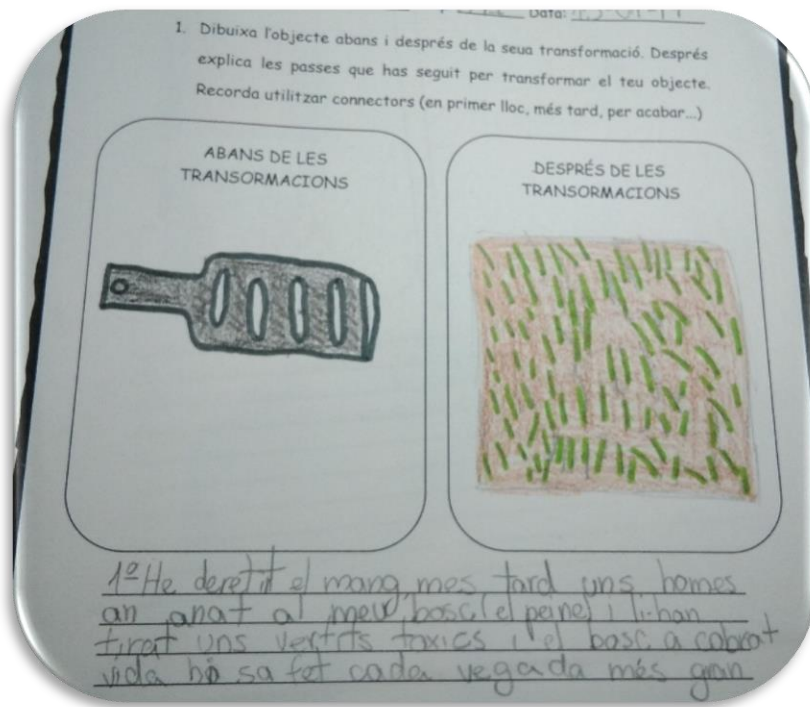 Data:
1. Dibuixa l'objecte abans i després de la seua transformació. Després
explica les passes que has seguit per transformar el teu objecte.
Recorda utilitzar connectors (en primer lloc, més tard, per acabar...)
ABANS DE LES
TRANSORMACIONS
DESPRÉS DE LES
TRANSORMACIONS
1º He deretit el mang, mes tard uns homes
an anat al meu bosc (el peine) i li han
tirat uns vertits toxics i el bosc a cobrat
vida sa fet cada vegada més gran